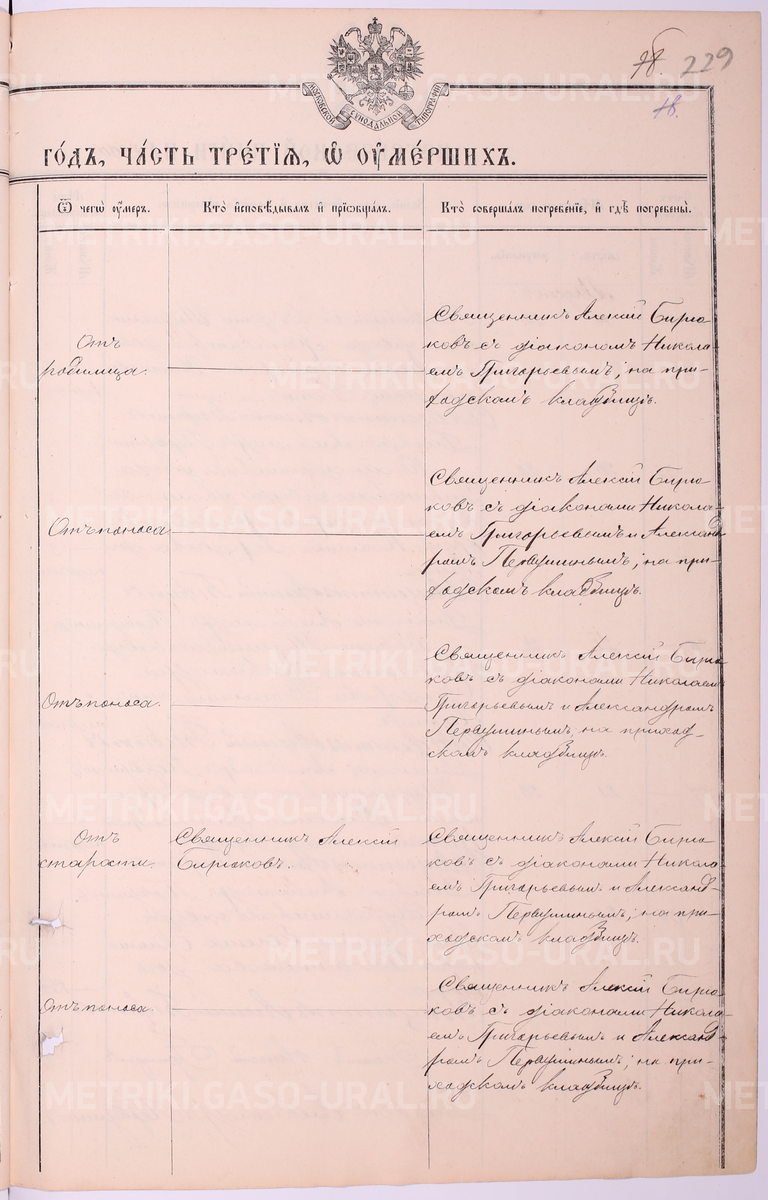 78. 229
78.
МОСКОВСКОЙ СУНОДАЛЬНОЙ ТИПОГРАФІИ
го́дъ, ча́сть тре́тїѧ, ѡ҆ оу҆ме́ршихъ.
Ѿ чегѡ̀ оу҆́меръ.
Кто̀ и҆сповѣ́дывалъ и҆ прїѡбща́лъ.
Кто̀ соверша́лъ погребе́нїе, и҆ гдѣ̀ погребены̀.
Отъ
родимца.
Священникъ Алексій Бирю-
ковъ съ діакономъ Никола-
емъ Григорьевымъ; на при-
ходскомъ кладбищѣ.
Отъ поноса
Священникъ Алексій Бирю-
ковъ съ діаконами Никола-
емъ Григорьевымъ и Александ-
ромъ Первушинымъ; на при-
ходскомъ кладбищѣ.
Отъ поноса.
Священникъ Алексій Бирю-
ковъ съ діаконами Николаемъ
Григорьевымъ и Александромъ
Первушинымъ, на приход-
скомъ кладбищѣ.
Отъ
старости.
Священникъ Алексій
Бирюковъ.
Священникъ Алексій Бирю-
ковъ съ діаконами Никола-
емъ Григорьевымъ и Александ-
ромъ Первушинымъ; на при-
ходскомъ кладбищѣ.
Отъ поноса.
Священникъ Алексій Бирю-
ковъ съ діаконами Никола-
емъ Григорьевымъ и Александ-
ромъ Первушинымъ; на при-
ходскомъ кладбищѣ.
METRIKI.GASO-URAL.RU